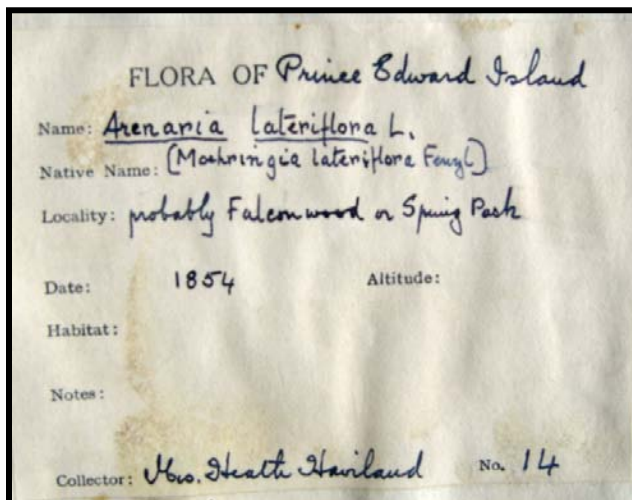 FLORA OF Prince Edward Island
Name: Arenaria lateriflora L.
Native Name: (Moehringia lateriflora Fenzl)
Locality: probably Falconwood or Spring Park
Date: 1854 Altitude:
Habitat:
Notes:
Collector: Mrs. Heath Haviland No. 14